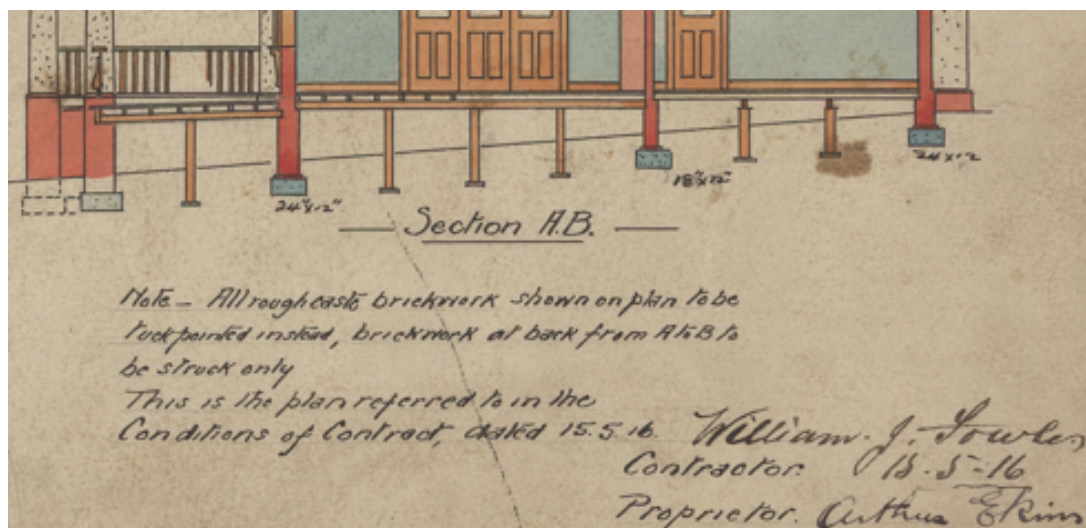 24"x12"
18"x12"
24x12
Section A.B.
Note – All roughcasts brickwork shown on plan to be
tuckpointed instead, brickwork at back from A to B to
be struck only
This is the plan referred to in the
Conditions of Contract, dated 15.5.16
William. J.
Contractor. 15.5.16
Proprietor. Arthur Ekins